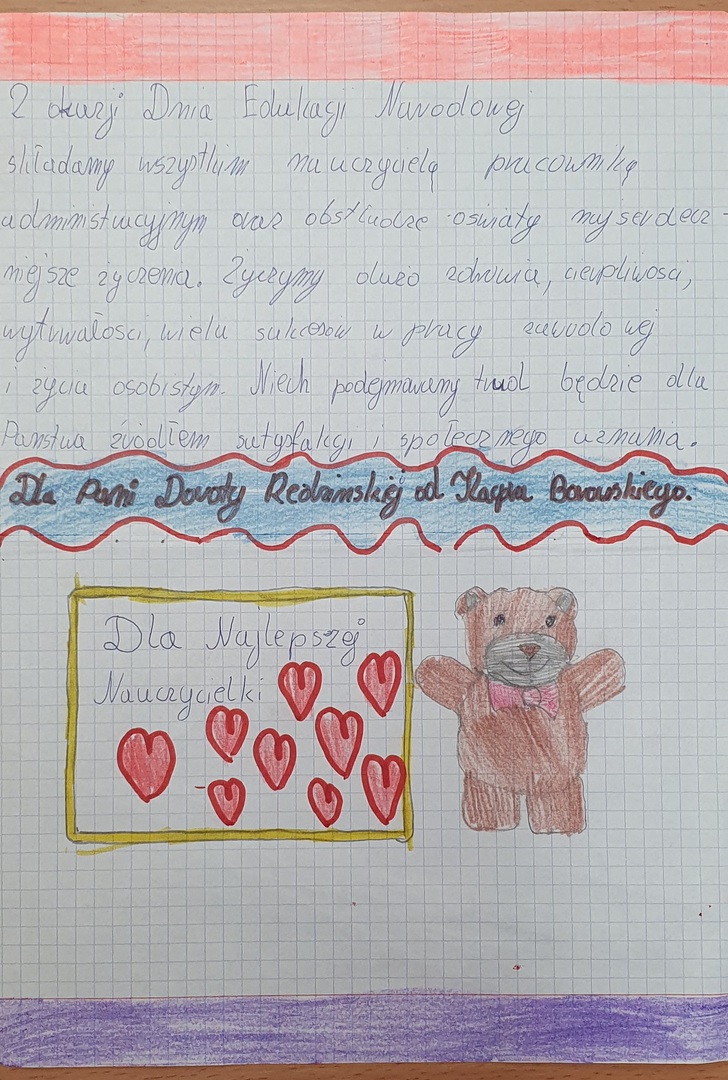 Z okazji Dnia Edukacji Narodowej
składamy wszystkim nauczycielą pracowniką
administracyjnym oraz obsłudze oświaty najserdecz
niejsze życzenia. Życzymy dużo zdrowia, cierpliwości,
wytrwałości, wielu sukcesów w pracy zawodowej
i życiu osobistym. Niech podejmowany trud będzie dla
Państwa źródłem satysfakcji i społecznego uznania.
Dla Pani Doroty Redzimskiej od Kacpra Borowskiego.
Dla Najlepszej
Nauczycielki